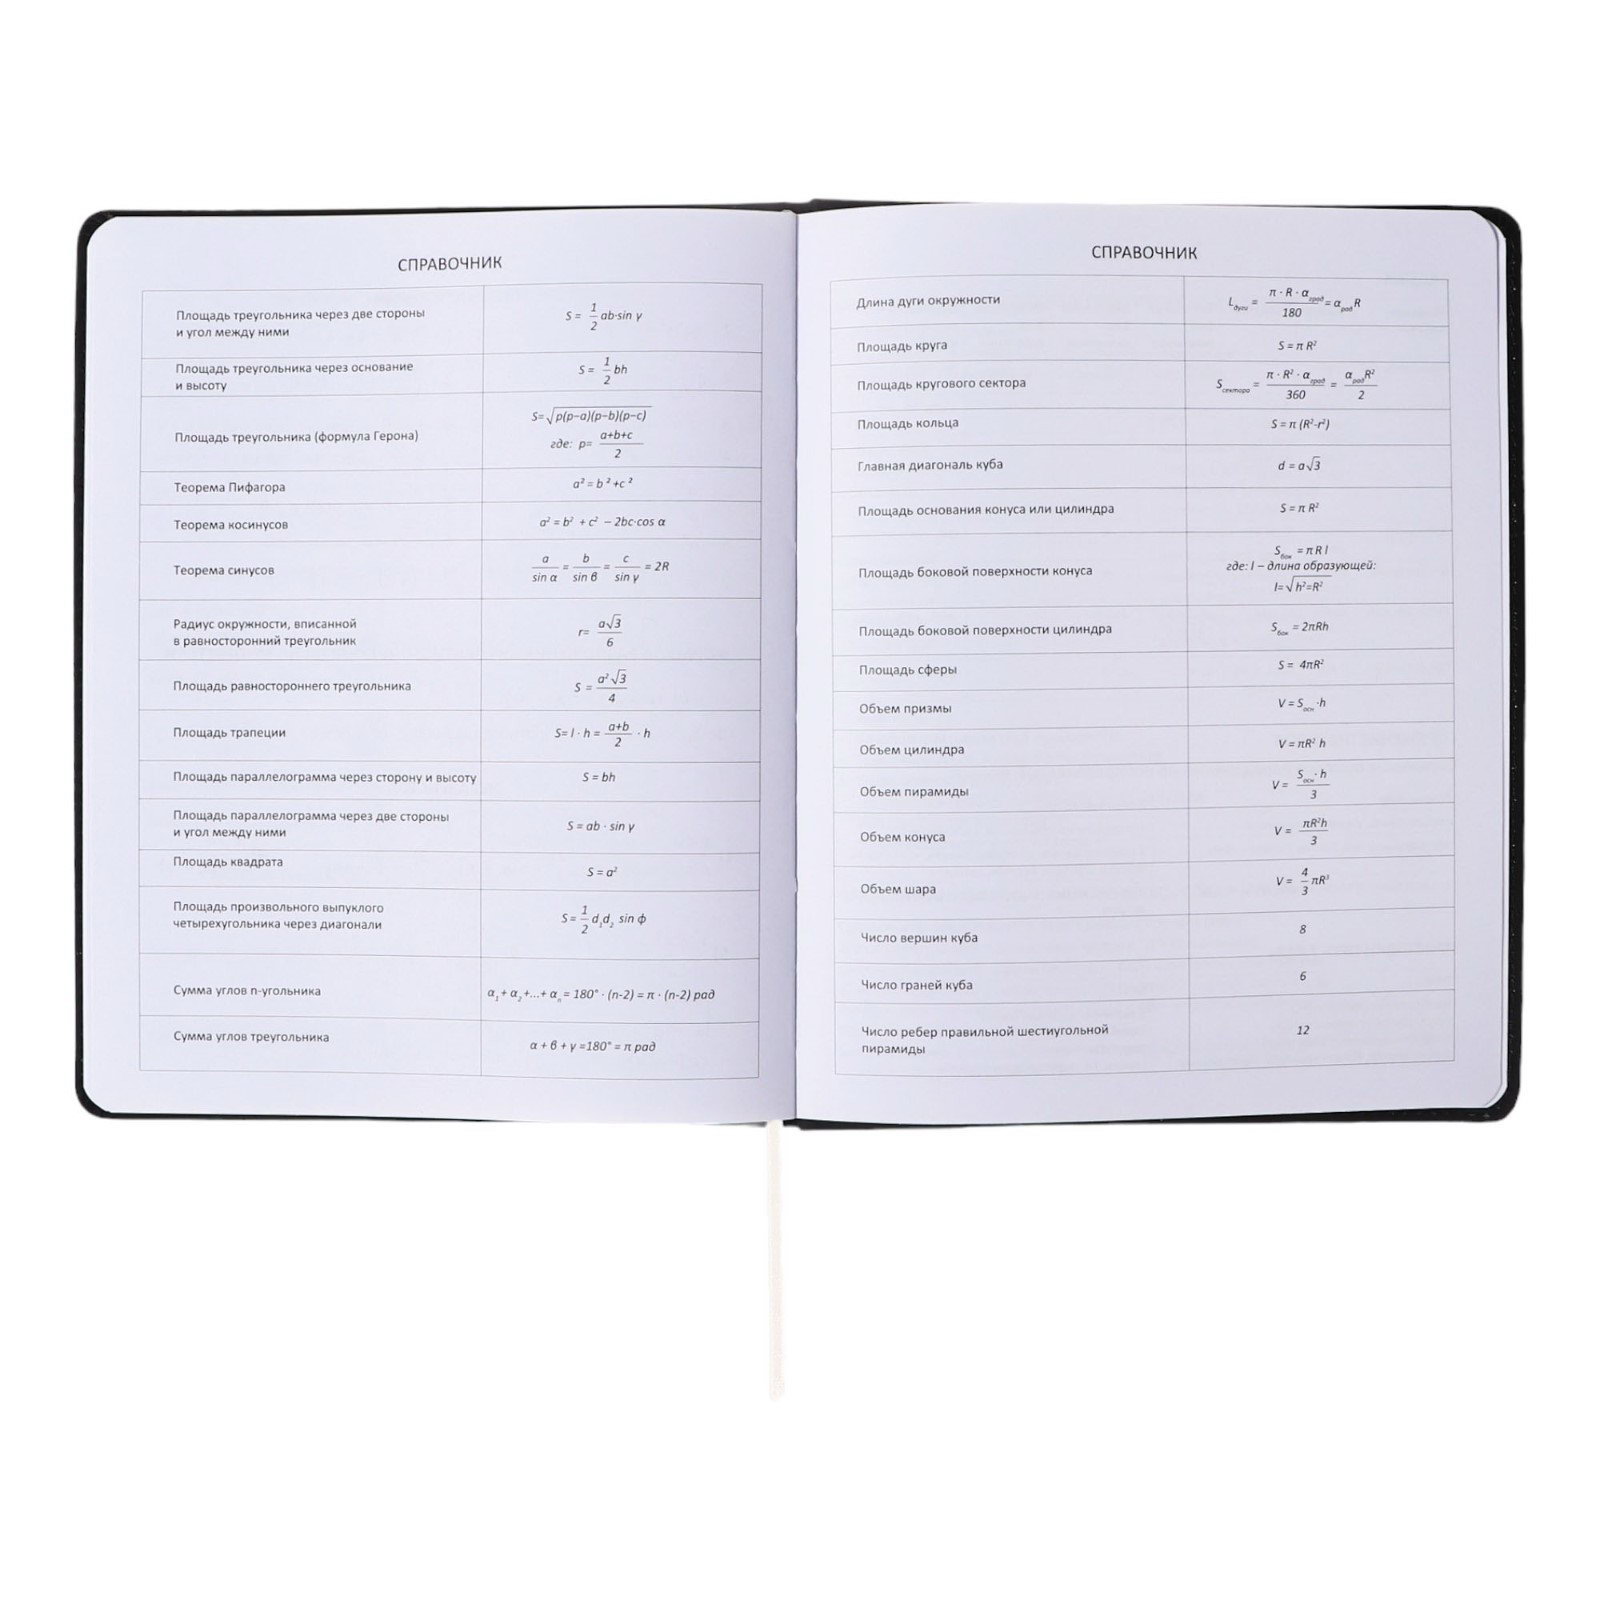 СПРАВОЧНИК
Площадь треугольника через две стороны
и угол между ними
S = 1/2 ab·sin γ
Площадь треугольника через основание
и высоту
S = 1/2 bh
Площадь треугольника (формула Герона)
S=√p(p−a)(p−b)(p−c)
где: p= a+b+c/2
Теорема Пифагора
a² = b² +c²
Теорема косинусов
a² = b² + c² − 2bc·cos α
Теорема синусов
a/sin α = b/sin β = c/sin γ = 2R
Радиус окружности, вписанной
в равносторонний треугольник
r= a√3/6
Площадь равностороннего треугольника
S = a²√3/4
Площадь трапеции
S= l · h = a+b/2 · h
Площадь параллелограмма через сторону и высоту
S = bh
Площадь параллелограмма через две стороны
и угол между ними
S = ab · sin γ
Площадь квадрата
S = a²
Площадь произвольного выпуклого
четырехугольника через диагонали
S= 1/2 d₁d₂ sin ф
Сумма углов n-угольника
α₁ + α₂ +...+ αₙ = 180° · (n-2) = π · (n-2) рад
Сумма углов треугольника
α + β + γ =180° = π рад
СПРАВОЧНИК
Длина дуги окружности
Lдуги = π · R · αград/180 = αрад R
Площадь круга
S = π R²
Площадь кругового сектора
Sсектора = π · R² · αград/360 = αрад R²/2
Площадь кольца
S = π (R²-r²)
Главная диагональ куба
d = a√3
Площадь основания конуса или цилиндра
S = π R²
Площадь боковой поверхности конуса
Sбок = π R l
где: l – длина образующей:
l=√h²=R²
Площадь боковой поверхности цилиндра
Sбок = 2πRh
Площадь сферы
S = 4πR²
Объем призмы
V = Sосн ·h
Объем цилиндра
V = πR² h
Объем пирамиды
V = Sосн· h/3
Объем конуса
V = πR²h/3
Объем шара
V = 4/3 πR³
Число вершин куба
8
Число граней куба
6
Число ребер правильной шестиугольной
пирамиды
12